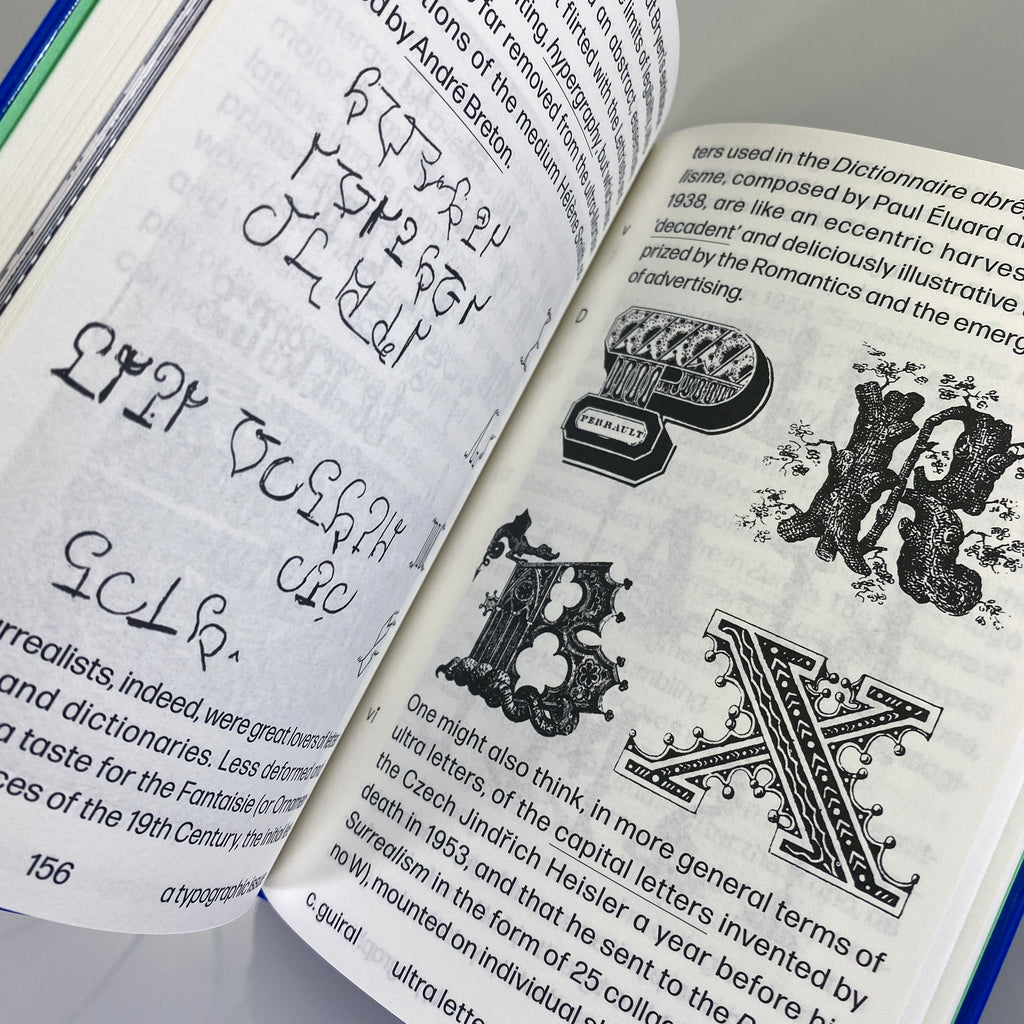 at Bryen's
the limits of legibility
d an abstract, essen
t flirted with the Lettrists'
nting, hypergraphy, but which
so far removed from the ultra-
tions of the medium Hélène Smith
d by André Breton.
urrealists, indeed, were great lovers of
and dictionaries. Less deformed
a taste for the Fantaisie (or
ces of the 19th Century, the initial
156
a typographic
ters used in the Dictionnaire abré
lisme, composed by Paul Éluard a
1938, are like an eccentric harves
'decadent' and deliciously illustrative
prized by the Romantics and the emerg
of advertising.
v
D
PERRAULT
R
E
X
vi
One might also think, in more general terms of
ultra letters, of the capital letters invented by
the Czech Jindřich Heisler a year before hi
death in 1953, and that he sent to the D
Surrealism in the form of 25 colla
no W), mounted on individual s
c. guiral
ultra lette